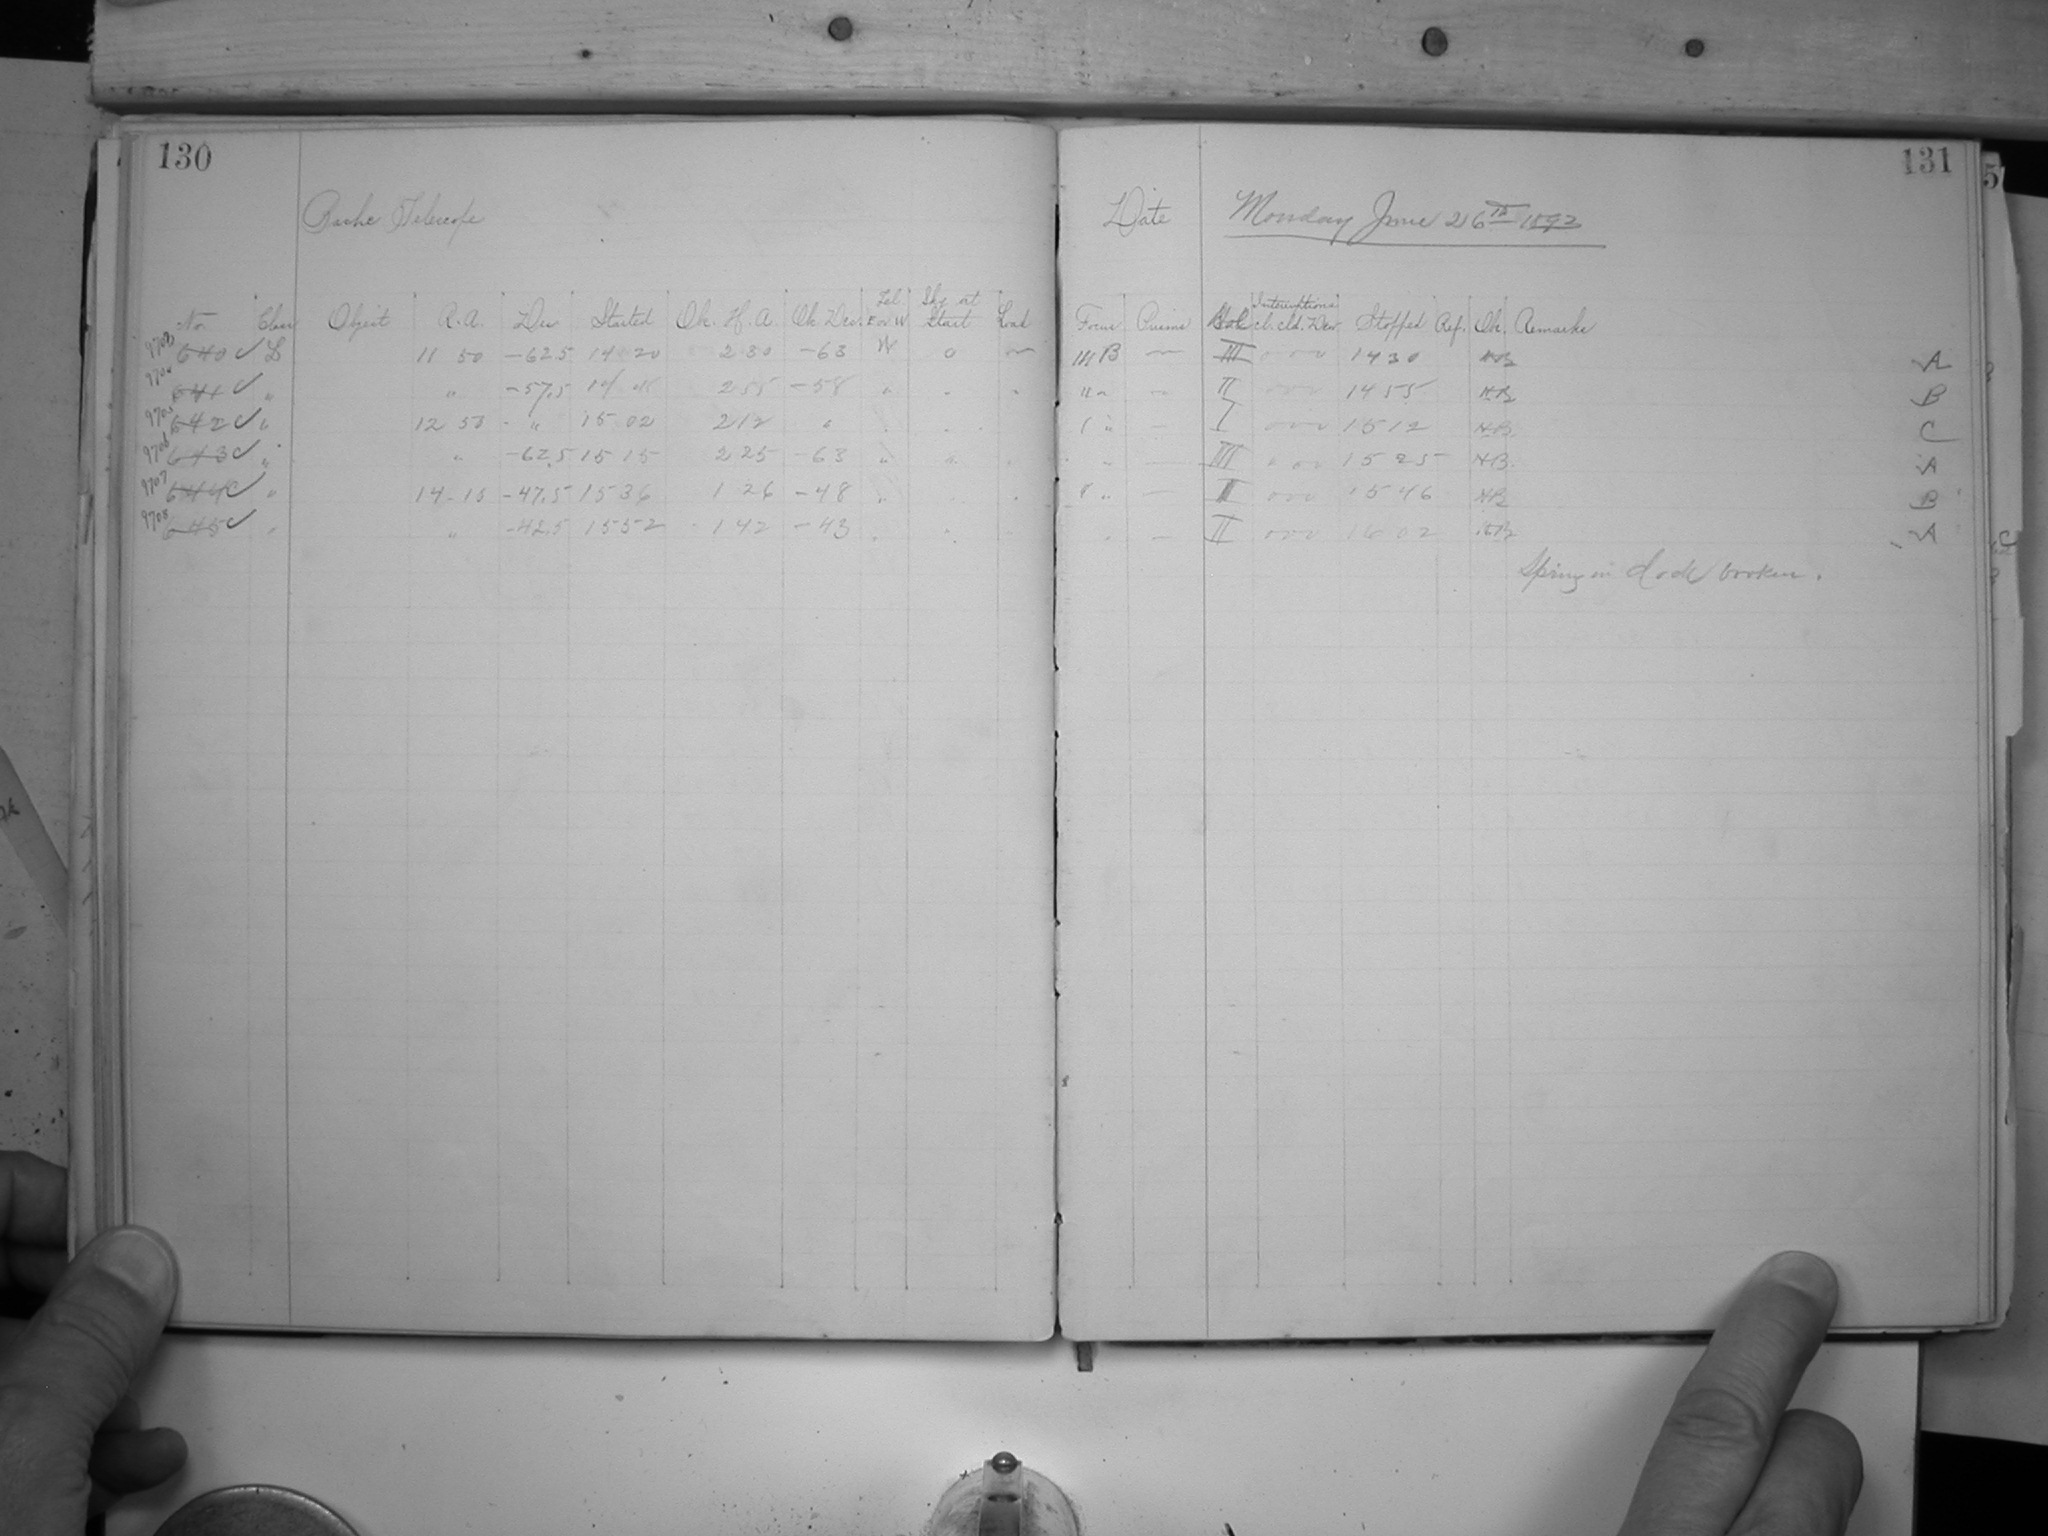 130
Bache Telescope
No. Class Object R.A. Dec Started Ok. H.A Ok Dec. Tel E or W Sky at Start Load
9703 640 ✓ L 11 50 -62.5 14 20 2 30 -63 W 0 —
9704 641 ✓ " " -57.5 14 45 2 55 -58 "
9705 642 ✓ " 12 50 " 15 02 2 12 "
9706 643 ✓ " " -62.5 15 15 2 25 -63 " "
9707 644 ✓ " 14-15 -47.5 15 36 1 26 -48 "
9708 645 ✓ " " -42.5 15 52 1 42 -43 "
131
Date Monday June 26th 1892
Focus Prisms Interruptions cl. cld. Dew Stopped Ref. Ok. Remarks
B — III 0 0 0 14 30 A
" — II 0 0 0 14 55 B
" — I 0 0 0 15 12 C
" — III 0 0 0 15 25 A
" — II 0 0 0 15 46 B
" — II 0 0 0 16 02 A
Spring in clock broken.